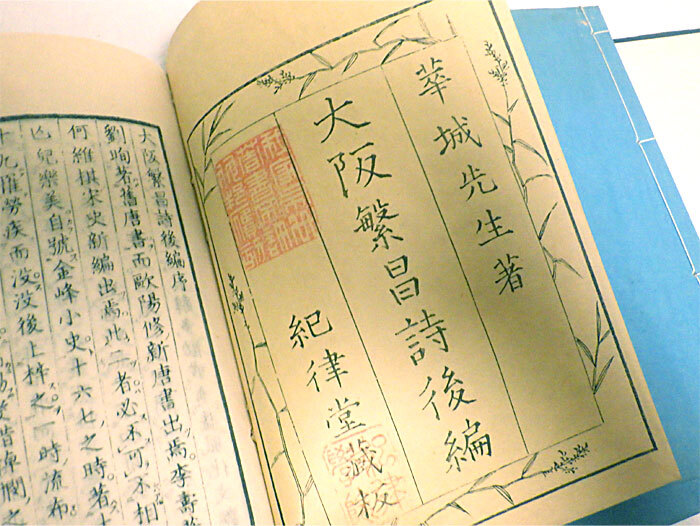 華城先生著
大阪繁昌詩後編
紀律堂藏板
大阪繁昌詩後編序
劉昫著舊唐書而歐陽修新唐書出焉李壽
何維棋宋史新編出焉此二者必不可不相
亾兒樂美自號金峰小史十六七之時著
十九罹勞疾而没没後上梓之一時流布